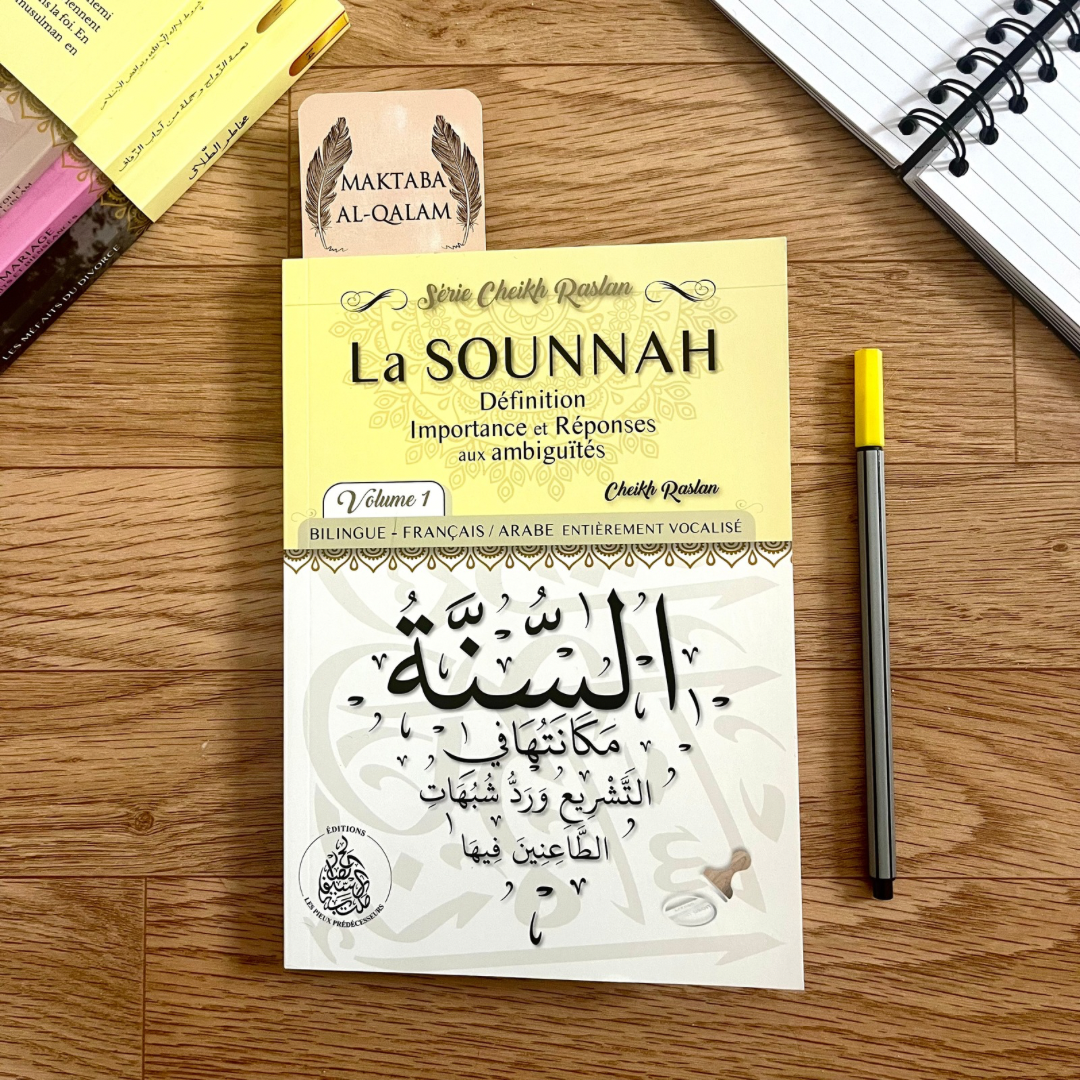 ans la foi. En
musulman en
مخاطر الطلاق
MARIAGE
LES MÉFAITS DU DIVORCE
MAKTABA
AL-QALAM
Série Cheikh Raslan
La SOUNNAH
Définition
Importance et Réponses
aux ambiguïtés
Cheikh Raslan
Volume 1
BILINGUE - FRANÇAIS / ARABE ENTIÈREMENT VOCALISÉ
السُّنَّةُ
مَكَانَتُهَا فِي
التَّشْرِيعِ وَرَدُّ شُبُهَاتِ
الطَّاعِنِينَ فِيهَا
ÉDITIONS
LES PIEUX PRÉDÉCESSEURS